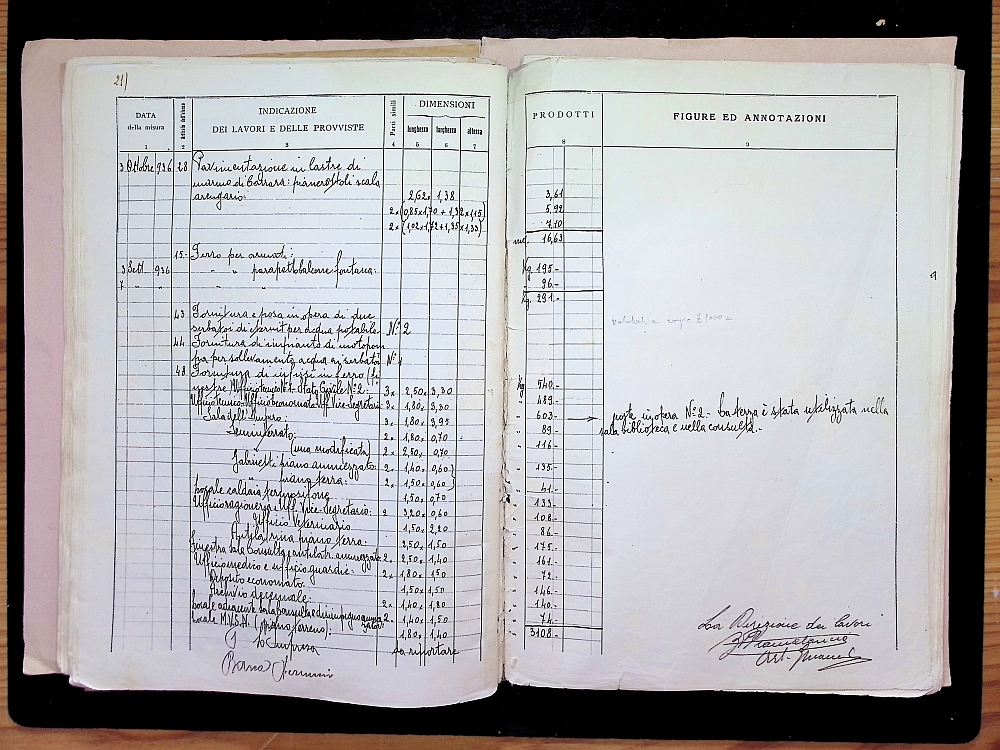 21)
DATA della misura
Articolo dell'elenco
INDICAZIONE
DEI LAVORI E DELLE PROVVISTE
Parti simili
DIMENSIONI
lunghezza larghezza altezza
1 2 3 4 5 6 7
3 Ottobre 936 28 Pavimentazione in lastre di
marmo di Carrara: pianerottoli scala
arengario: 2,62x 1,38
2x (0,85x1,70 + 1,32x1,15)
2x (1,02x1,72+1,35x1,33)
15- Ferro per armati:
3 Sett 936 " " parapetto balcone fontana:
7 " " " "
43 Fornitura e posa in opera di due
serbatoi di eternit per acqua potabile. N° 2
44 Fornitura di impianto di motopom
pa per sollevamento acqua ai serbatoi N° 1
48 Fornitura di infissi in ferro (fi
nestre) Ufficio tecnico N°1 - Stato Civile N°2: 3x 2,50x 3,30
Ufficio tecnico - Ufficio Economato Uff. Vice-Segretario 3x 1,80x 3,30
Sala dell'Impero: 3x 1,80x 3,95
Seminterrato: 2x 1,80x 0,70
" (una modificata) 2x 2,50x 0,70
Gabinetti piano ammezzato: 2x 1,40x 0,60)
" piano terra: 2x 1,50x 0,60)
Locale caldaia termosifone 1,50x 0,70
Ufficio ragioneria e Uff. Vice-Segretario: 2 3,20x 0,60
Ufficio Veterinario 1,50x 2,20
Antilatrina piano terra: 2,50x 1,50
Finestra sala Consulta e antilatr. ammezzato: 2x 2,50x 1,40
Ufficio medico e ufficio guardie: 2x 1,80x 1,50
Deposito economato: 1,50x 1,50
Archivio decennale: 2x 1,40x 1,80
Locale adiacente sala Consulta e disimpegno 2x 1,40x 1,50
Locale M.V.S.N. (piano terreno): 1,80x 1,40
L'Impresa
da riportare
PRODOTTI
FIGURE ED ANNOTAZIONI
8 9
3,61
5,92
7,10
mq. 16,63
Kg 195-
96-
Kg. 291-
Kg 540-
" 489-
" 603- poste in opera N° 2 - La terza è stata utilizzata nella
" 89- sala biblioteca e nella consulta.-
" 116-
" 135-
" 41-
" 133-
" 108-
" 86-
" 175-
" 161-
" 72-
" 146-
" 140-
" 74-
" 3108-
La Direzione dei lavori